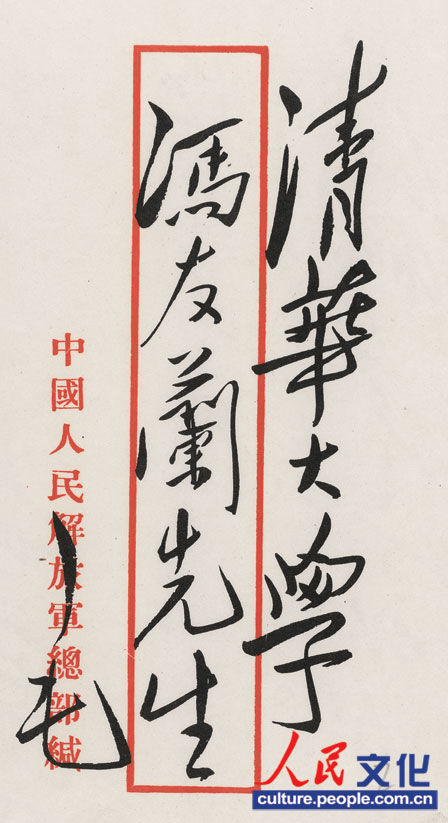 清華大學
馮友蘭先生
中國人民解放軍總部緘
毛
人民文化
culture.people.com.cn